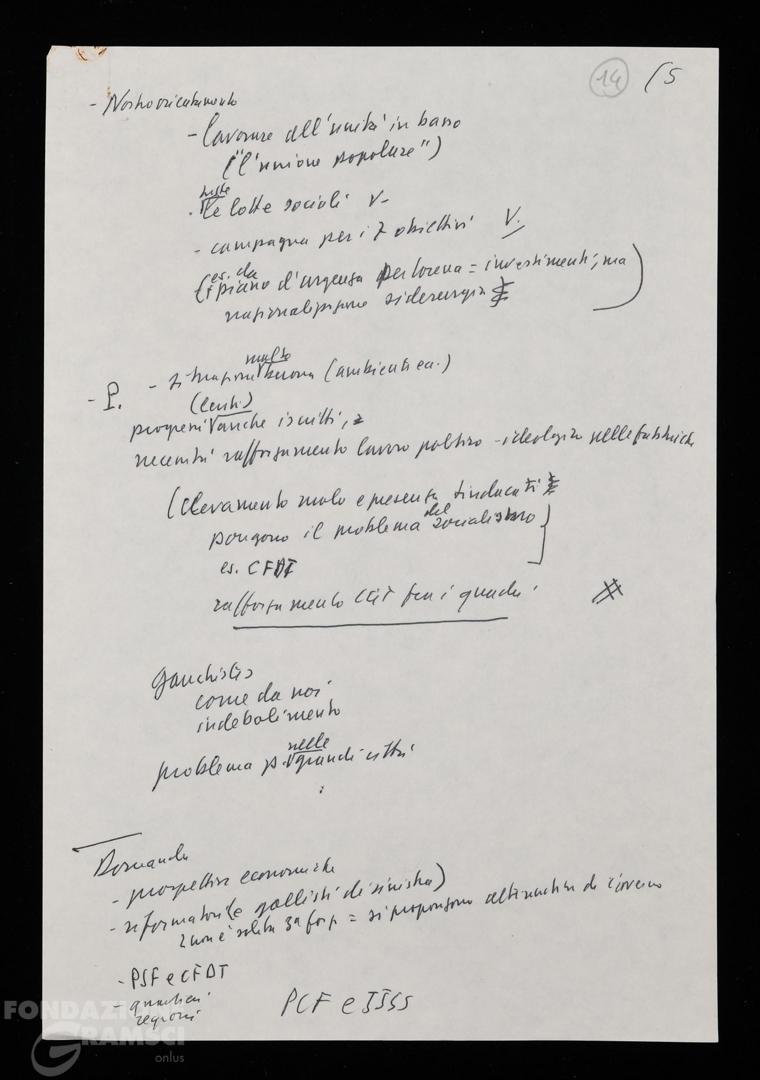 14 /5
- Nostro orientamento
- lavorare all'unità in basso
("l'unione popolare")
nelle
- le lotte sociali V-
- campagna per i 7 obiettivi V.
es. da
piano d'urgenza per Lorena = investimenti, ma
nazionalizzazione siderurgia
- P. - situazione molto buona (ambienti ecc.)
(lenti)
progressi anche iscritti,
necessità rafforzamento lavoro politico-ideologico nelle fabbriche
(elevamento ruolo e presenza sindacati
pongono il problema del socialismo)
es. CFDT
rafforzamento CGT fra i quadri
Gauchistes
come da noi
indebolimento
problema p. nelle grandi città
Domande
- prospettive economiche
- riformatori (e gollisti di sinistra)
non è solita 3a forza = si propongono alternativa di governo
- PSF e CFDT
- quartieri
regioni
PCF e
FONDAZIONE
GRAMSCI
onlus